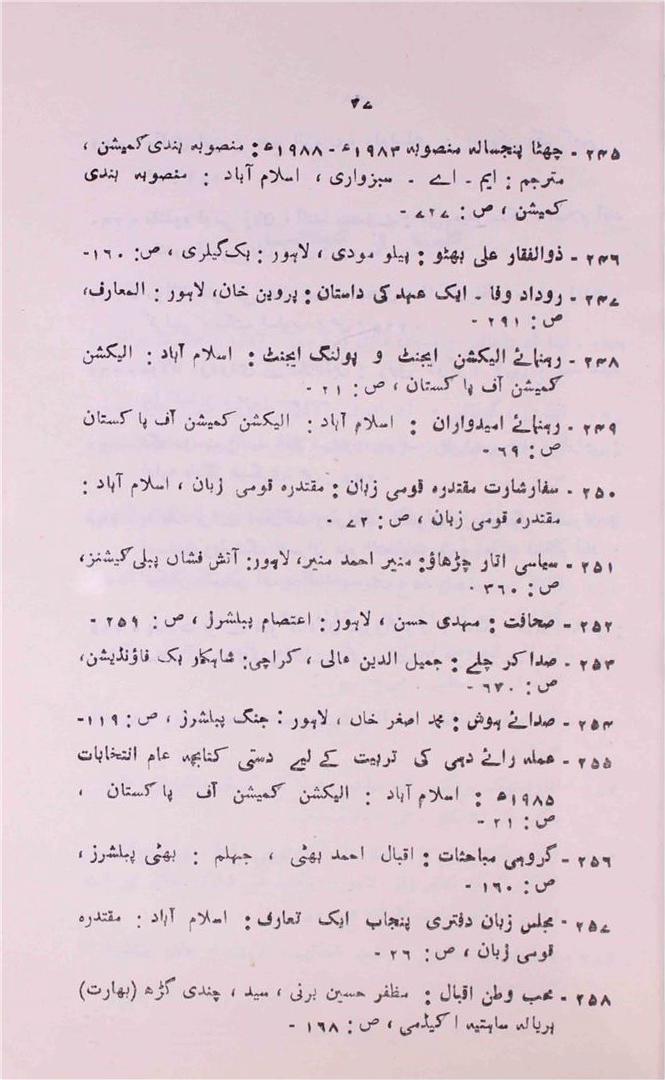 ۴۷
۲۴۵ - چھٹا پنجسالہ منصوبہ ۱۹۸۳ء - ۱۹۸۸ء : منصوبہ بندی کمیشن ،
مترجم : ایم - اے - سبزواری ، اسلام آباد : منصوبہ بندی
کمیشن ، ص : ۷۲۷ -
۲۴۶ - ذوالفقار علی بھٹو : پیلو مودی ، لاہور : بک گیلری ، ص : ۱۶۰ -
۲۴۷ - روداد وفا - ایک عہد کی داستان : پروین خان، لاہور : المعارف،
ص : ۲۹۱ -
۲۴۸ - رہنمائے الیکشن ایجنٹ و پولنگ ایجنٹ : اسلام آباد : الیکشن
کمیشن آف پاکستان ، ص : ۲۱ -
۲۴۹ - رہنمائے امیدواران : اسلام آباد : الیکشن کمیشن آف پاکستان
ص : ۶۹ -
۲۵۰ - سفارشارت مقتدرہ قومی زبان : مقتدرہ قومی زبان ، اسلام آباد :
مقتدرہ قومی زبان ، ص : ۷۲ -
۲۵۱ - سیاسی اتار چڑھاؤ : منیر احمد منیر، لاہور : آتش فشاں پبلی کیشنز،
ص : ۳۶۰ -
۲۵۲ - صحافت : مہدی حسن ، لاہور : اعتصام پبلشرز ، ص : ۲۵۹ -
۲۵۳ - صدا کر چلے : جمیل الدین عالی ، کراچی : شاہکار بک فاؤنڈیشن،
ص : ۶۷۰ -
۲۵۴ - صدائے ہوش : محمد اصغر خاں ، لاہور : جنگ پبلشرز ، ص : ۱۱۹ -
۲۵۵ - عملہ رائے دہی کی تربیت کے لیے دستی کتابچہ عام انتخابات
۱۹۸۵ء : اسلام آباد : الیکشن کمیشن آف پاکستان ،
ص : ۲۱ -
۲۵۶ - گروہی مباحثات : اقبال احمد بھٹی ، جہلم : بھٹی پبلشرز ،
ص : ۱۶۰ -
۲۵۷ - مجلس زبان دفتری پنجاب ایک تعارف : اسلام آباد : مقتدرہ
قومی زبان ، ص : ۲۶ -
۲۵۸ - محب وطن اقبال : مظفر حسین برنی ، سید ، چندی گڑھ (بھارت)
ہریالہ ساہتیہ اکیڈمی ، ص : ۱۶۸ -